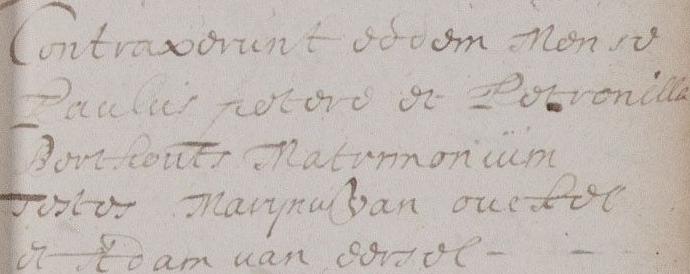 Contraxerunt eodem Mense
Paulus peters et Petronilla
Berthouts Matrimonium
Testes Marynus van
et Adam van eersel - -